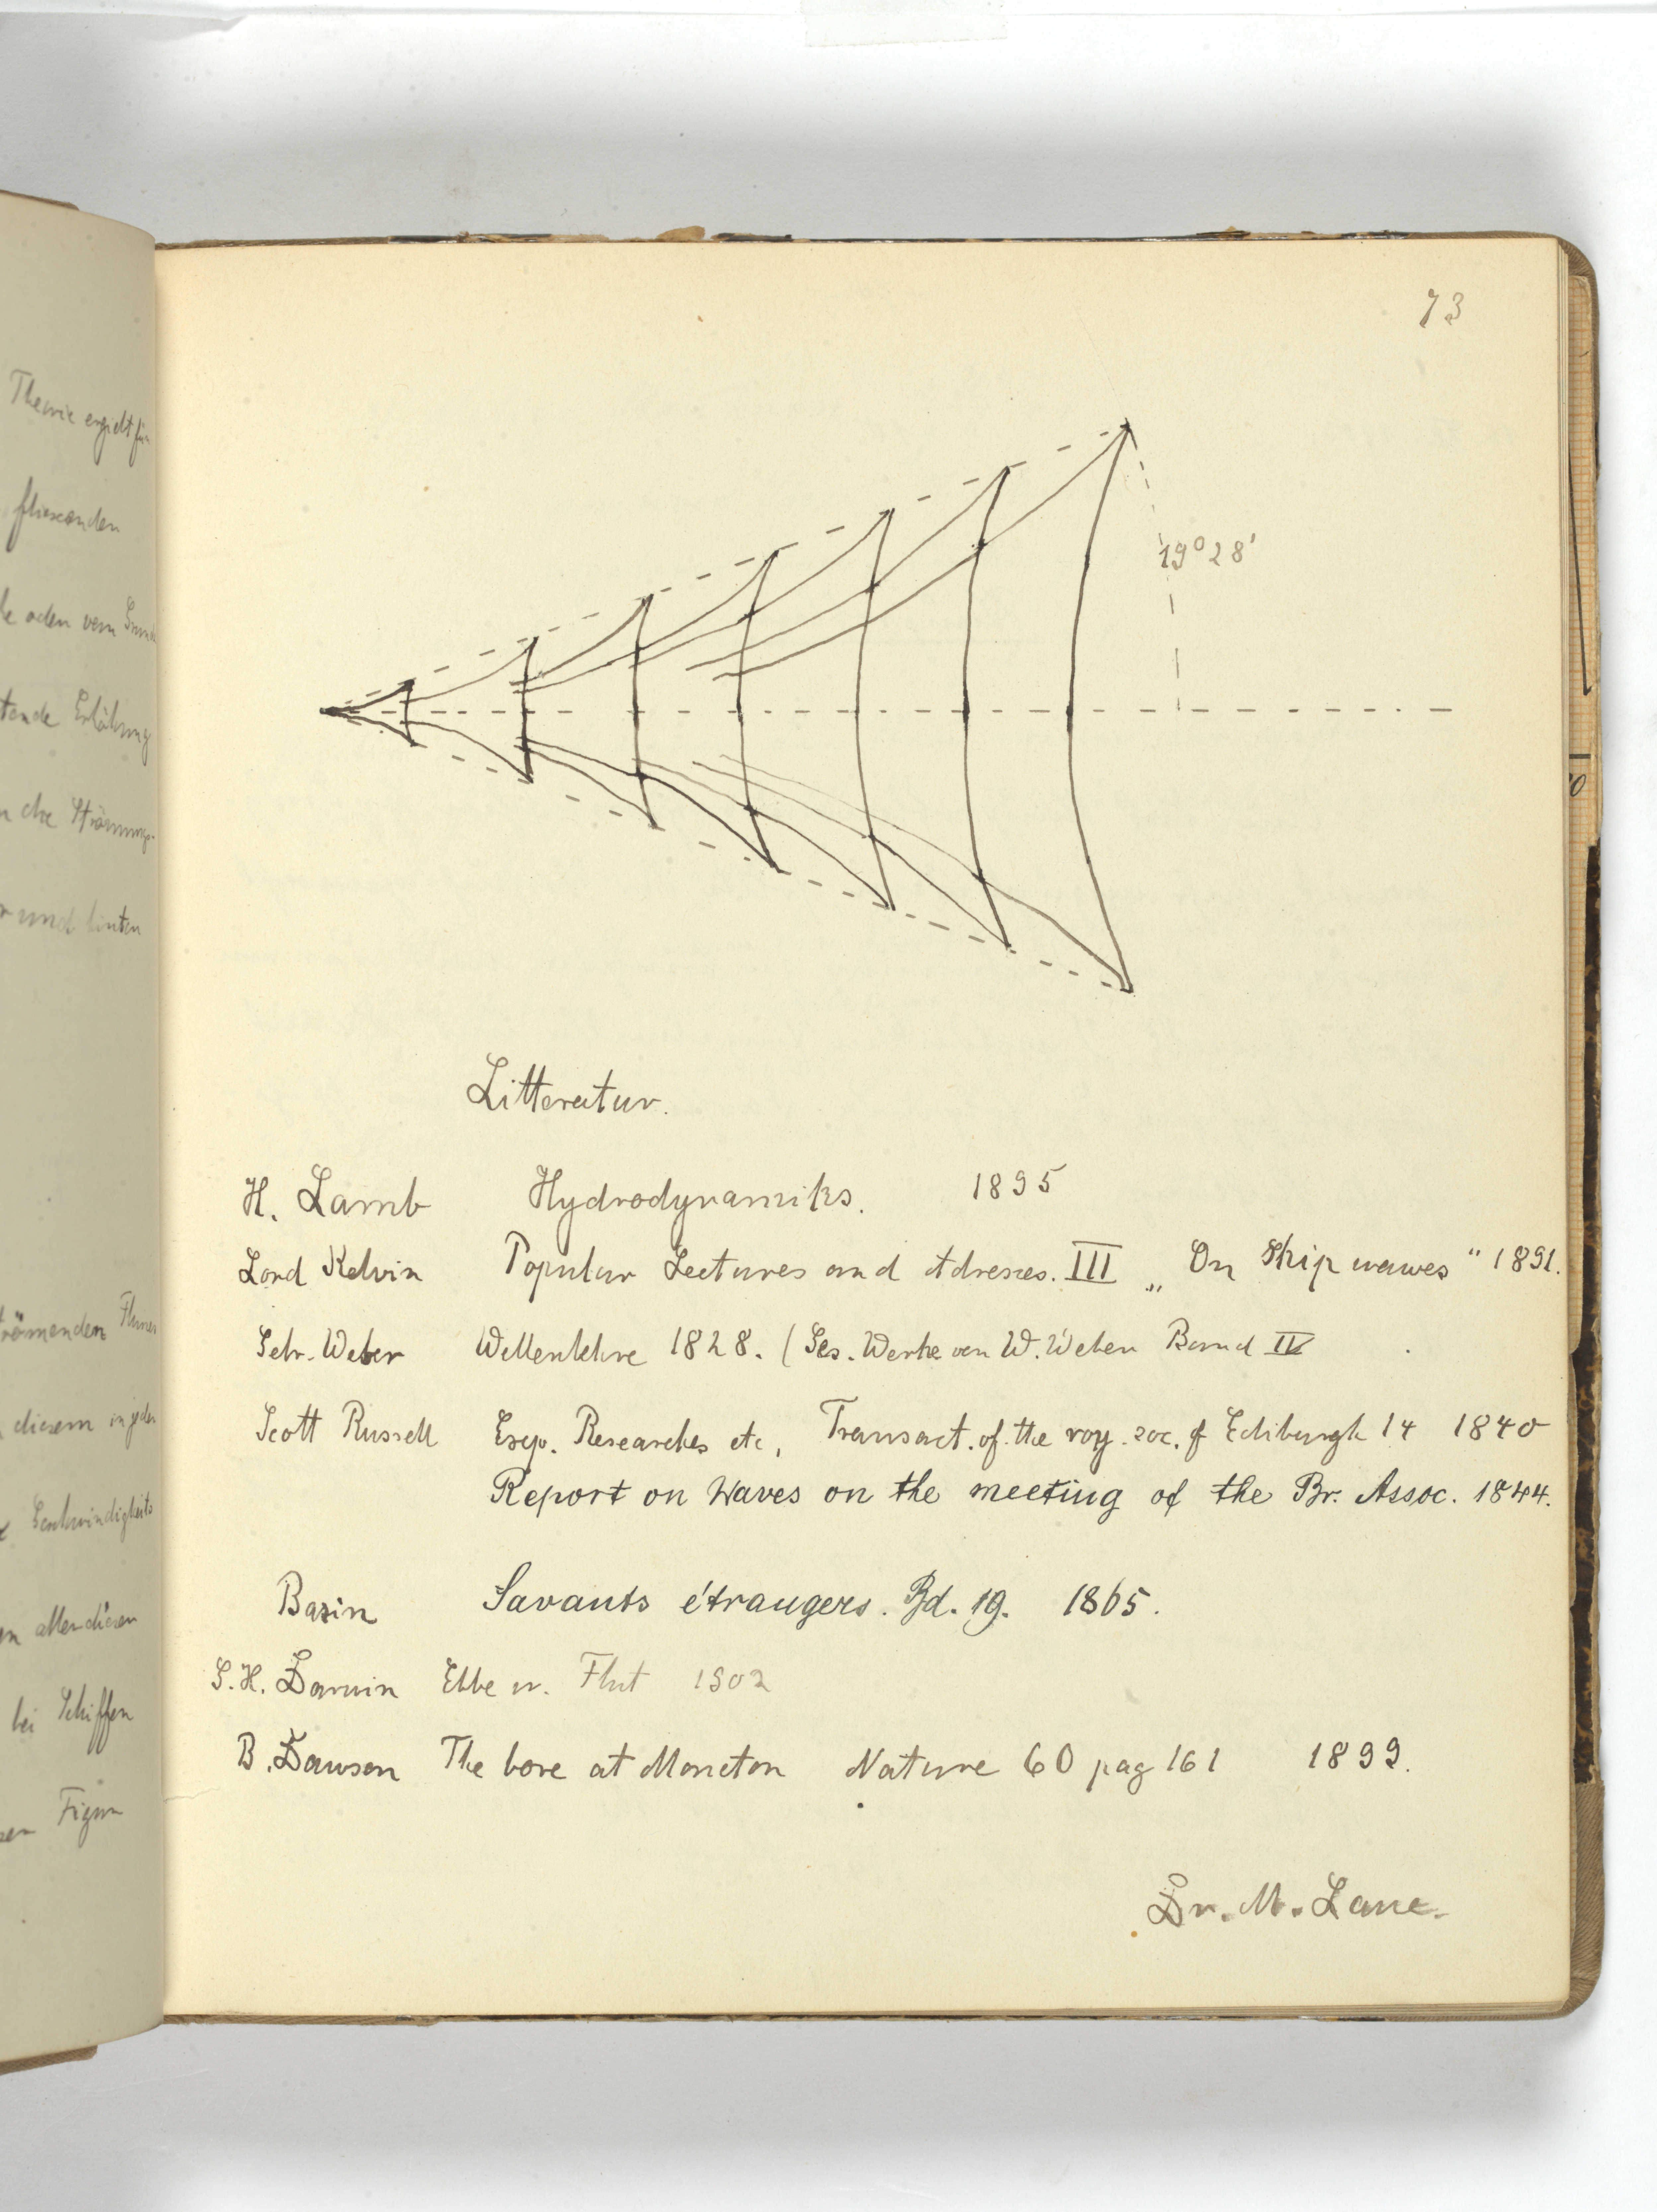 73
Theorie ergibt für
fliessenden
oder vom
Erhöhung
die
und hinten
diesem in jeder
Geschwindigkeits
allen diesen
bei Schiffen
Figur
19° 28'
Litteratur.
H. Lamb Hydrodynamiks. 1895
Lord Kelvin Popular Lectures and Adresses. III „On Ship wawes" 1891.
Gebr. Weber Wellenlehre 1828. (Ges. Werke von W. Weber Band IV
Scott Russell Exp. Researches etc, Transact. of the roy. soc. of Ediburgh 14 1840
Report on Waves on the meeting of the Br. Assoc. 1844.
Bazin Savants étrangers. Bd. 19. 1865.
G. H. Darwin Ebbe u. Flut 1902
B. Dawson The bore at Moncton Nature 60 pag 161 1899.
Dr. M. Laue.